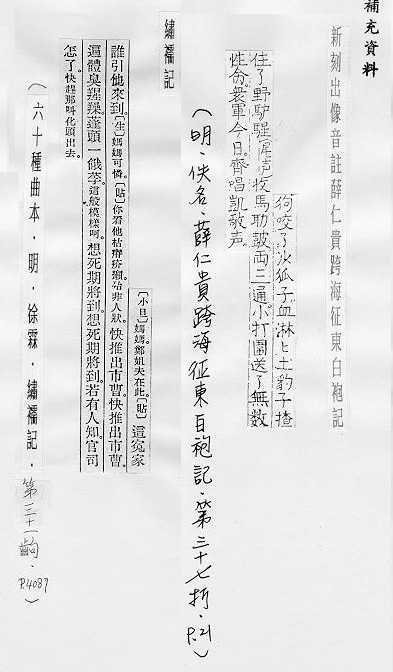 補充資料
新刻出像音註薛仁貴跨海征東白袍記
狗咬了火狐子血淋匕土豹子揸
住了野駝馬助皷両三通小打圍送了無数
性命衆軍今日齊唱凱歌声
(明.佚名.薛仁貴跨海征東白袍記.第三十七折.P.21)
繡襦記
〔小旦〕媽媽鄭姐夫在此。〔貼〕這冤家
誰引他來到。〔生〕媽媽可憐。〔貼〕你看他枯瘠疥癘殆非人狀。快推出市曹。快推出市曹。
這體臭腥臊。蓬頭一餓莩。這般模樣呵。想死期將到。想死期將到。若有人知。官司
怎了。快趕那叫化頭出去。
(六十種曲本.明.徐霖.繡襦記.第三十一齣.P.4087)